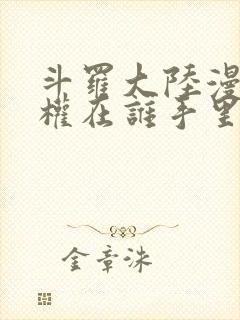 斗羅大陸漫
權在誰手里
金章洙